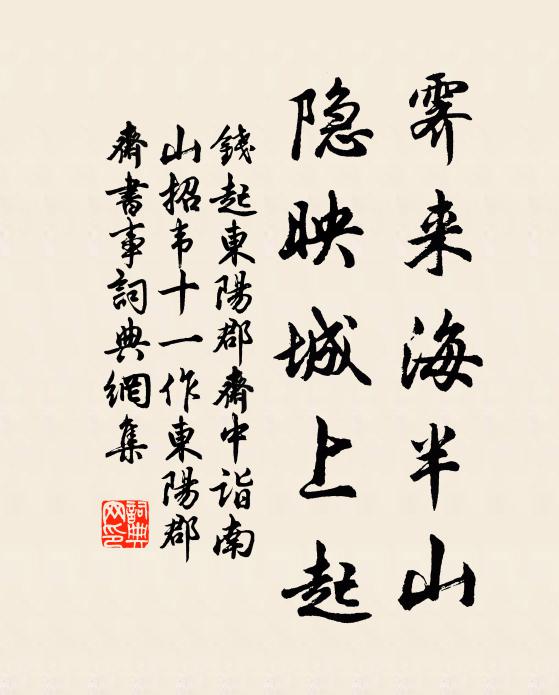 霁来海半山
隐映城上起
錢起東陽郡齋中詣南
山招韦十一作東陽郡
齋書事詞典網集
詞典
网印